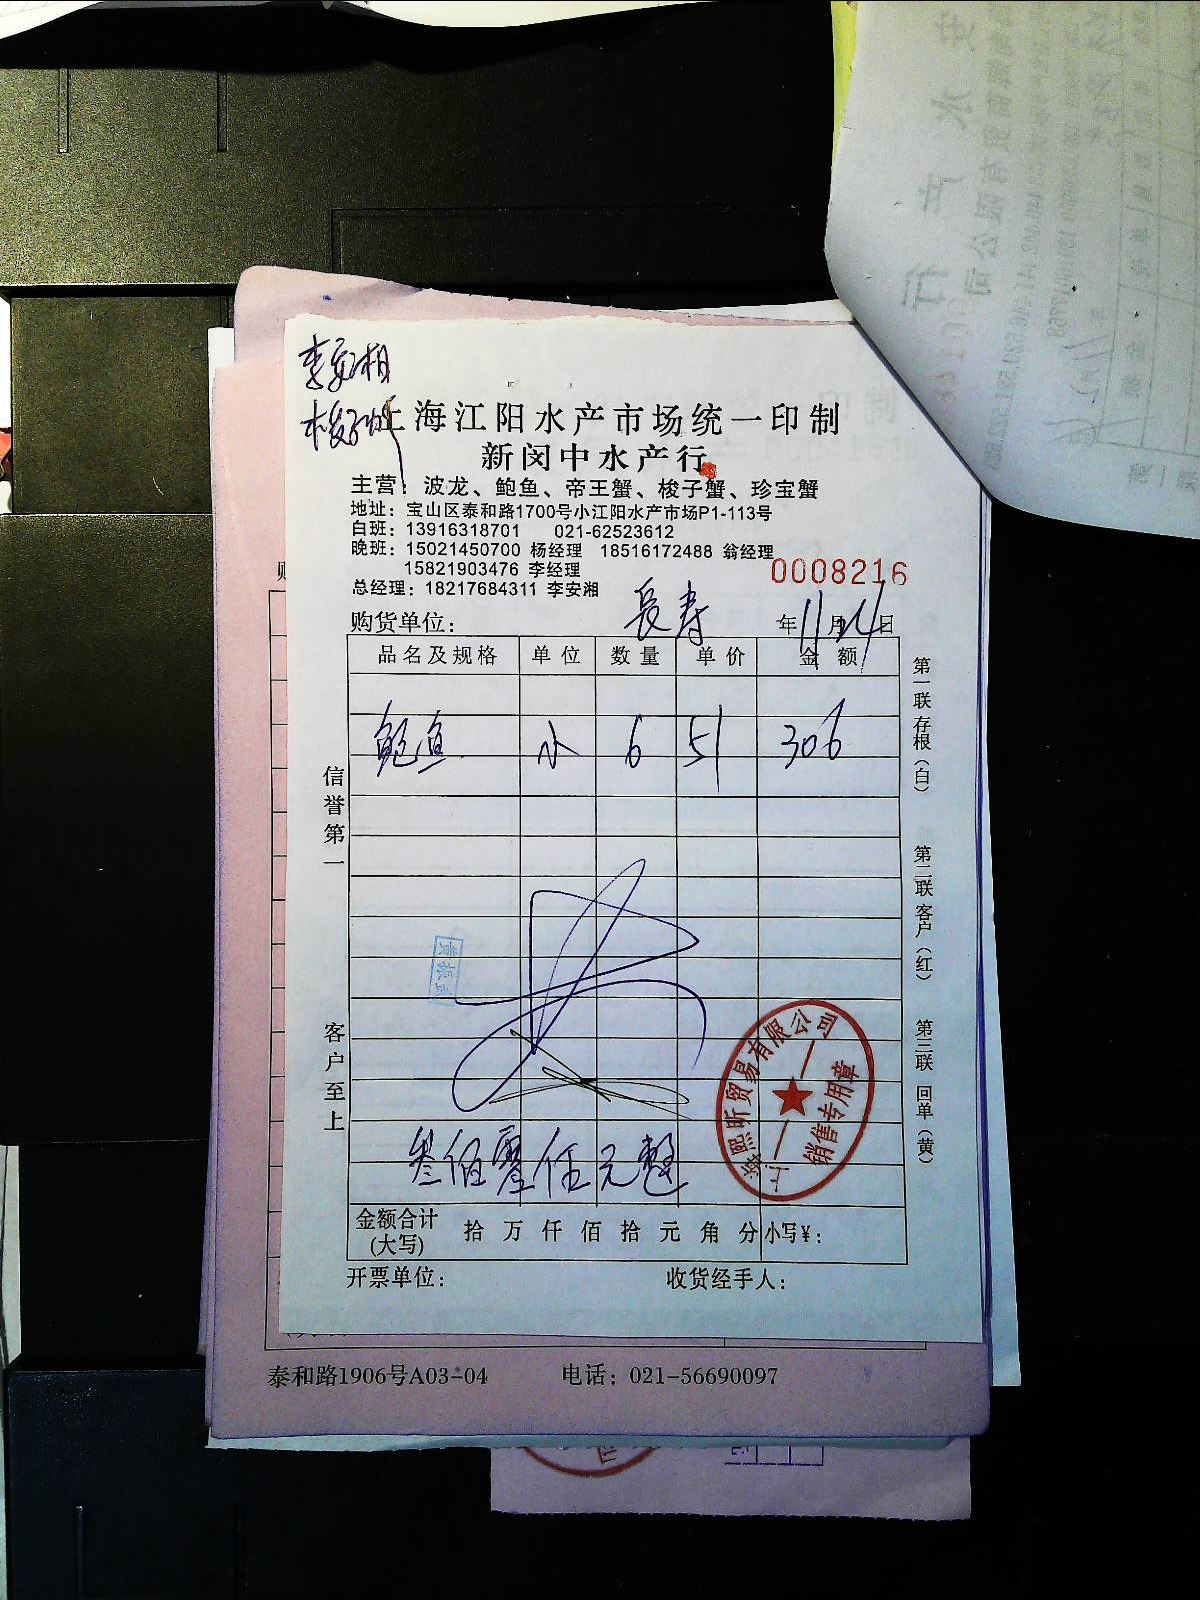 李安相
上海江阳水产市场统一印制
新闵中水产行
主营：波龙、鲍鱼、帝王蟹、梭子蟹、珍宝蟹
地址：宝山区泰和路1700号小江阳水产市场P1-113号
白班：13916318701 021-62523612
晚班：15021450700 杨经理 18516172488 翁经理
15821903476 李经理
0008216
总经理：18217684311 李安湘
购货单位： 長寿 年11月24日
品名及规格 单位 数量 单价 金额
鲍鱼 小 6 51 306
信誉第一
客户至上
第一联存根（白）
第二联客户（红）
第三联回单（黄）
黄振
上海熙昕贸易有限公司
销售专用章
叁佰零伍元整
金额合计(大写) 拾万仟佰拾元角分 小写¥：
开票单位： 收货经手人：
泰和路1906号A03-04 电话：021-56690097